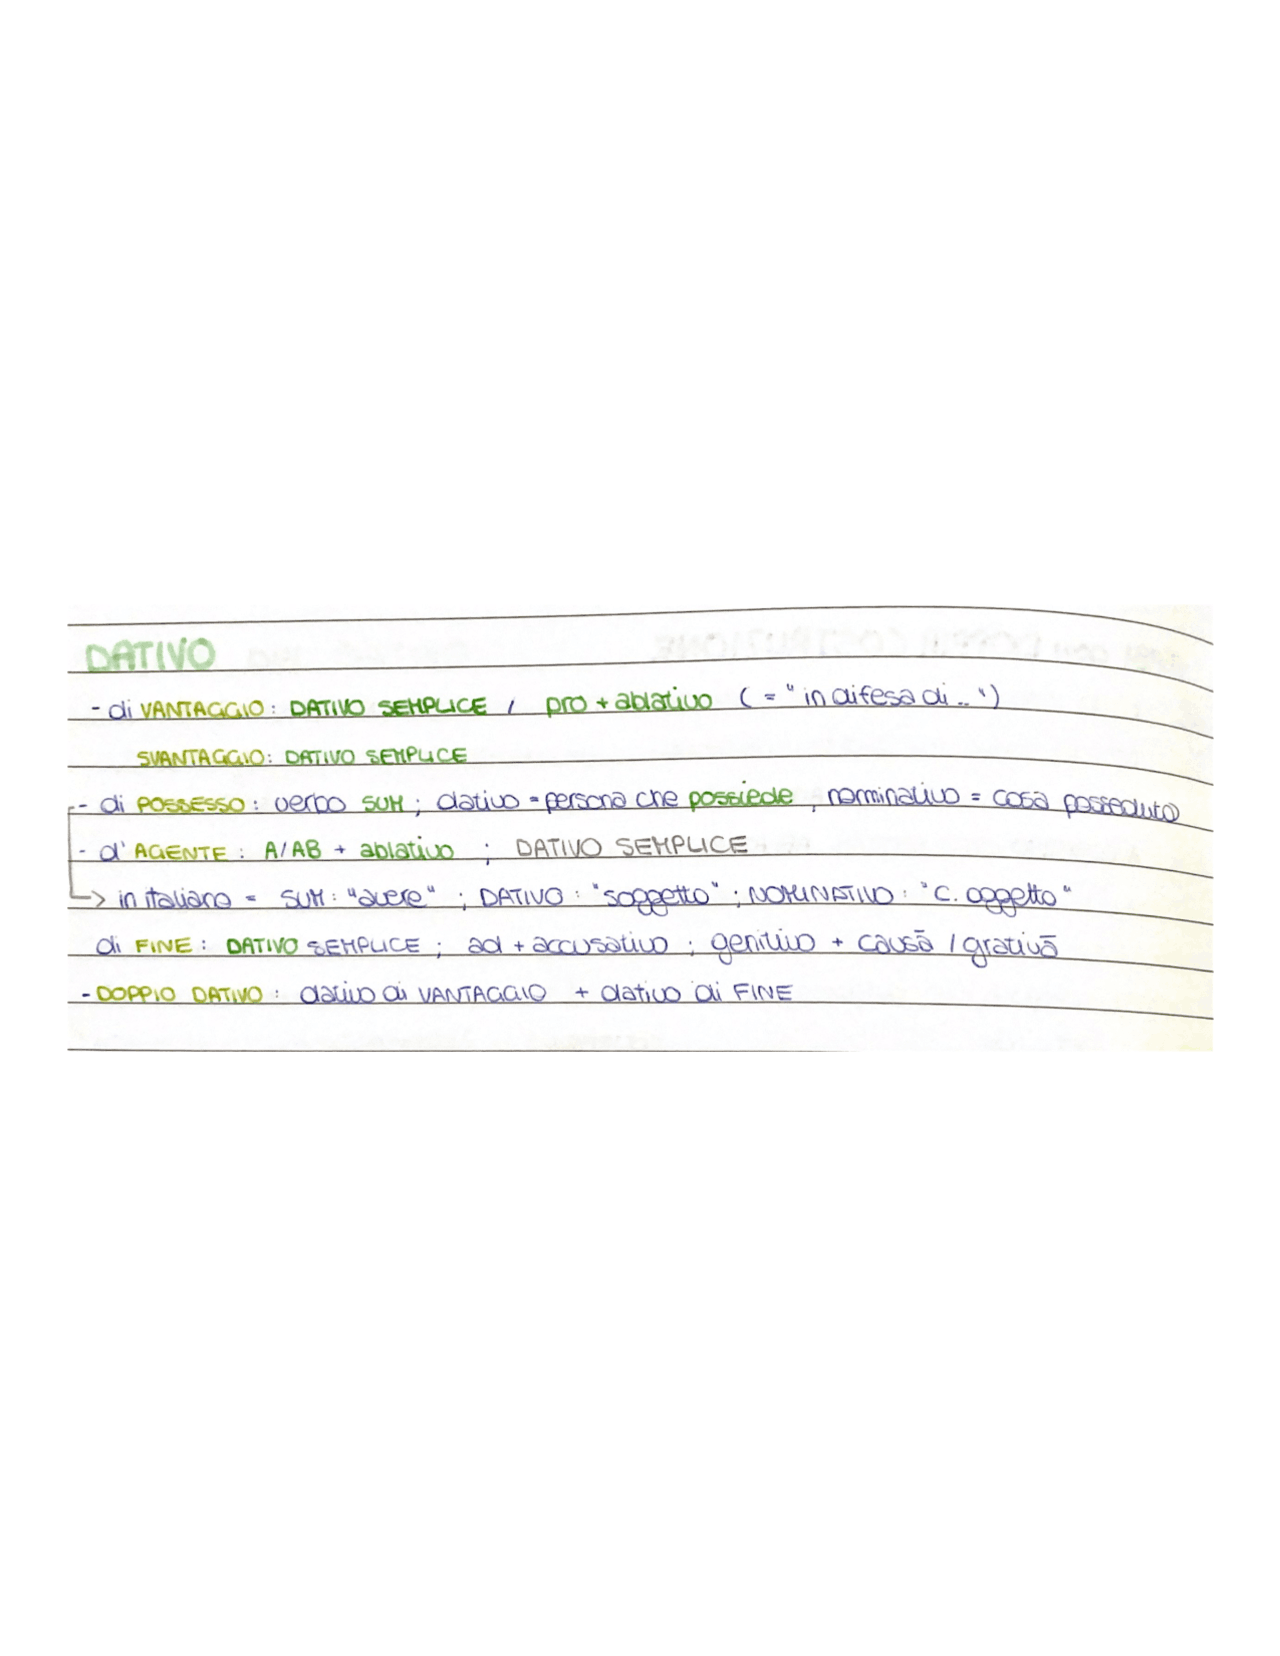 DATIVO
- di VANTAGGIO: DATIVO SEMPLICE / pro + ablativo ( = "in difesa di .. ")
SVANTAGGIO: DATIVO SEMPLICE
- di POSSESSO: verbo SUM ; dativo = persona che possiede , nominativo = cosa posseduto
- d'AGENTE: A/AB + ablativo ; DATIVO SEMPLICE
-> in italiano = SUM: "avere" ; DATIVO: "soggetto" ; NOMINATIVO: "C. oggetto"
di FINE: DATIVO SEMPLICE ; ad + accusativo ; genitivo + causā / grativā
- DOPPIO DATIVO: dativo di VANTAGGIO + dativo di FINE